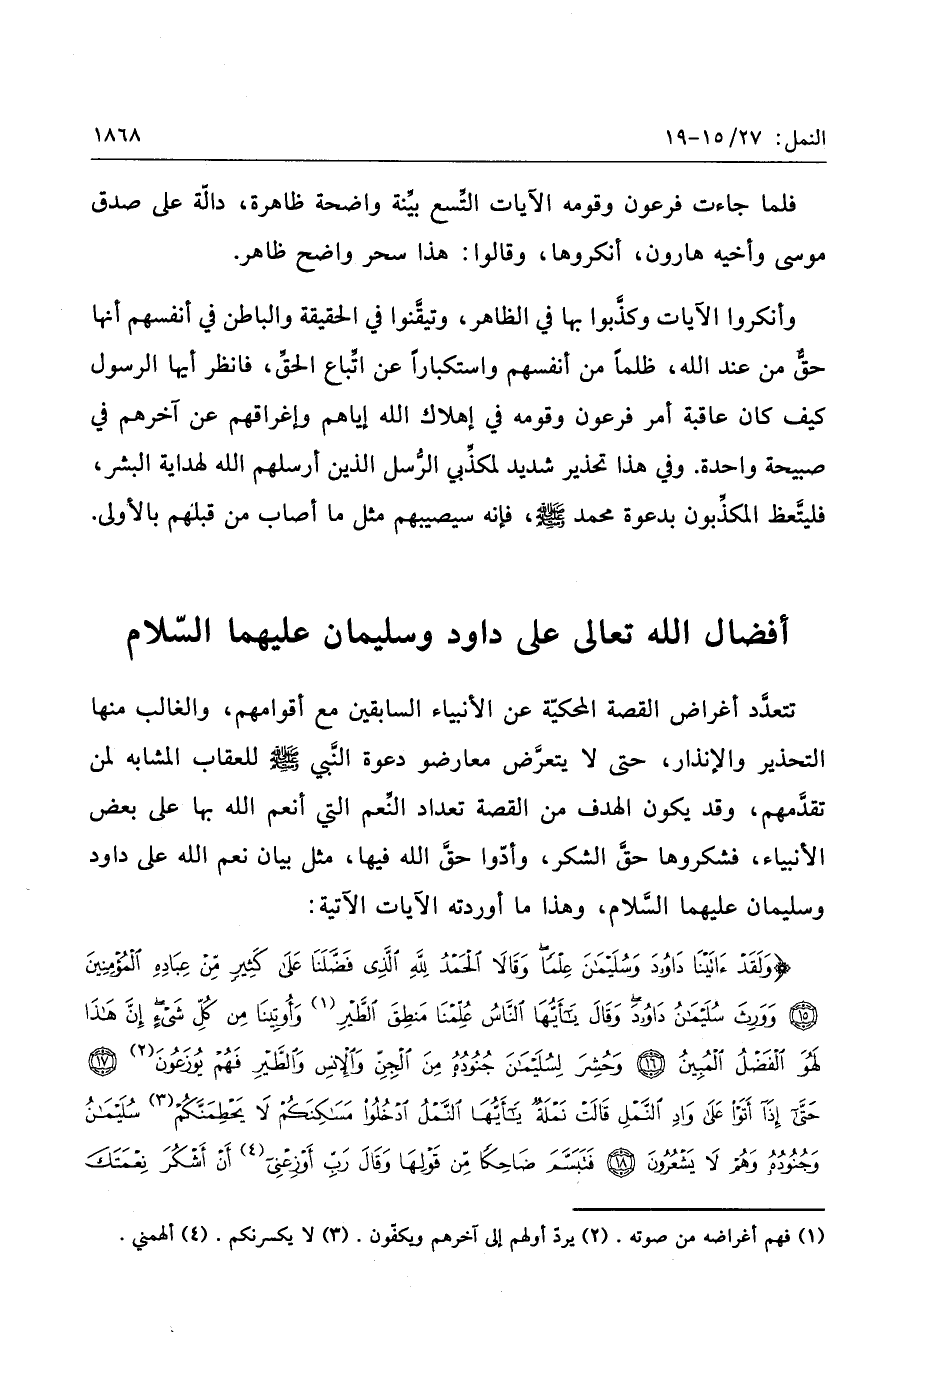 النمل: ٢٧/ ١٥-١٩ ١٨٦٨
فلما جاءت فرعون وقومه الآيات التِّسع بيِّنة واضحة ظاهرة، دالّة على صدق
موسى وأخيه هارون، أنكروها، وقالوا: هذا سحر واضح ظاهر.
وأنكروا الآيات وكذَّبوا بها في الظاهر، وتيقَّنوا في الحقيقة والباطن في أنفسهم أنها
حقٌّ من عند الله، ظلماً من أنفسهم واستكباراً عن اتِّباع الحقِّ، فانظر أيها الرسول
كيف كان عاقبة أمر فرعون وقومه في إهلاك الله إياهم وإغراقهم عن آخرهم في
صبيحة واحدة. وفي هذا تحذير شديد لمكذِّبي الرُّسل الذين أرسلهم الله لهداية البشر،
فليتَّعظ المكذِّبون بدعوة محمد ﷺ، فإنه سيصيبهم مثل ما أصاب من قبلهم بالأولى.
أفضال الله تعالى على داود وسليمان عليهما السّلام
تتعدَّد أغراض القصة المحكيّة عن الأنبياء السابقين مع أقوامهم، والغالب منها
التحذير والإنذار، حتى لا يتعرَّض معارضو دعوة النَّبي ﷺ للعقاب المشابه لمن
تقدَّمهم، وقد يكون الهدف من القصة تعداد النِّعم التي أنعم الله بها على بعض
الأنبياء، فشكروها حقَّ الشكر، وأدّوا حقَّ الله فيها، مثل بيان نعم الله على داود
وسليمان عليهما السَّلام، وهذا ما أوردته الآيات الآتية:
﴿وَلَقَدْ ءَاتَيْنَا دَاوُۥدَ وَسُلَيْمَٰنَ عِلْمًاۖ وَقَالَا ٱلْحَمْدُ لِلَّهِ ٱلَّذِى فَضَّلَنَا عَلَىٰ كَثِيرٍ مِّنْ عِبَادِهِ ٱلْمُؤْمِنِينَ
١٥ وَوَرِثَ سُلَيْمَٰنُ دَاوُۥدَۖ وَقَالَ يَٰٓأَيُّهَا ٱلنَّاسُ عُلِّمْنَا مَنطِقَ ٱلطَّيْرِ(١) وَأُوتِينَا مِن كُلِّ شَىْءٍۖ إِنَّ هَٰذَا
لَهُوَ ٱلْفَضْلُ ٱلْمُبِينُ ١٦ وَحُشِرَ لِسُلَيْمَٰنَ جُنُودُهُۥ مِنَ ٱلْجِنِّ وَٱلْإِنسِ وَٱلطَّيْرِ فَهُمْ يُوزَعُونَ(٢) ١٧
حَتَّىٰٓ إِذَآ أَتَوْا۟ عَلَىٰ وَادِ ٱلنَّمْلِ قَالَتْ نَمْلَةٌ يَٰٓأَيُّهَا ٱلنَّمْلُ ٱدْخُلُوا۟ مَسَٰكِنَكُمْ لَا يَحْطِمَنَّكُمْ(٣) سُلَيْمَٰنُ
وَجُنُودُهُۥ وَهُمْ لَا يَشْعُرُونَ ١٨ فَتَبَسَّمَ ضَاحِكًا مِّن قَوْلِهَا وَقَالَ رَبِّ أَوْزِعْنِىٓ(٤) أَنْ أَشْكُرَ نِعْمَتَكَ
(١) فهم أغراضه من صوته . (٢) يردّ أولهم إلى آخرهم ويكفّون . (٣) لا يكسرنكم . (٤) ألهمني .